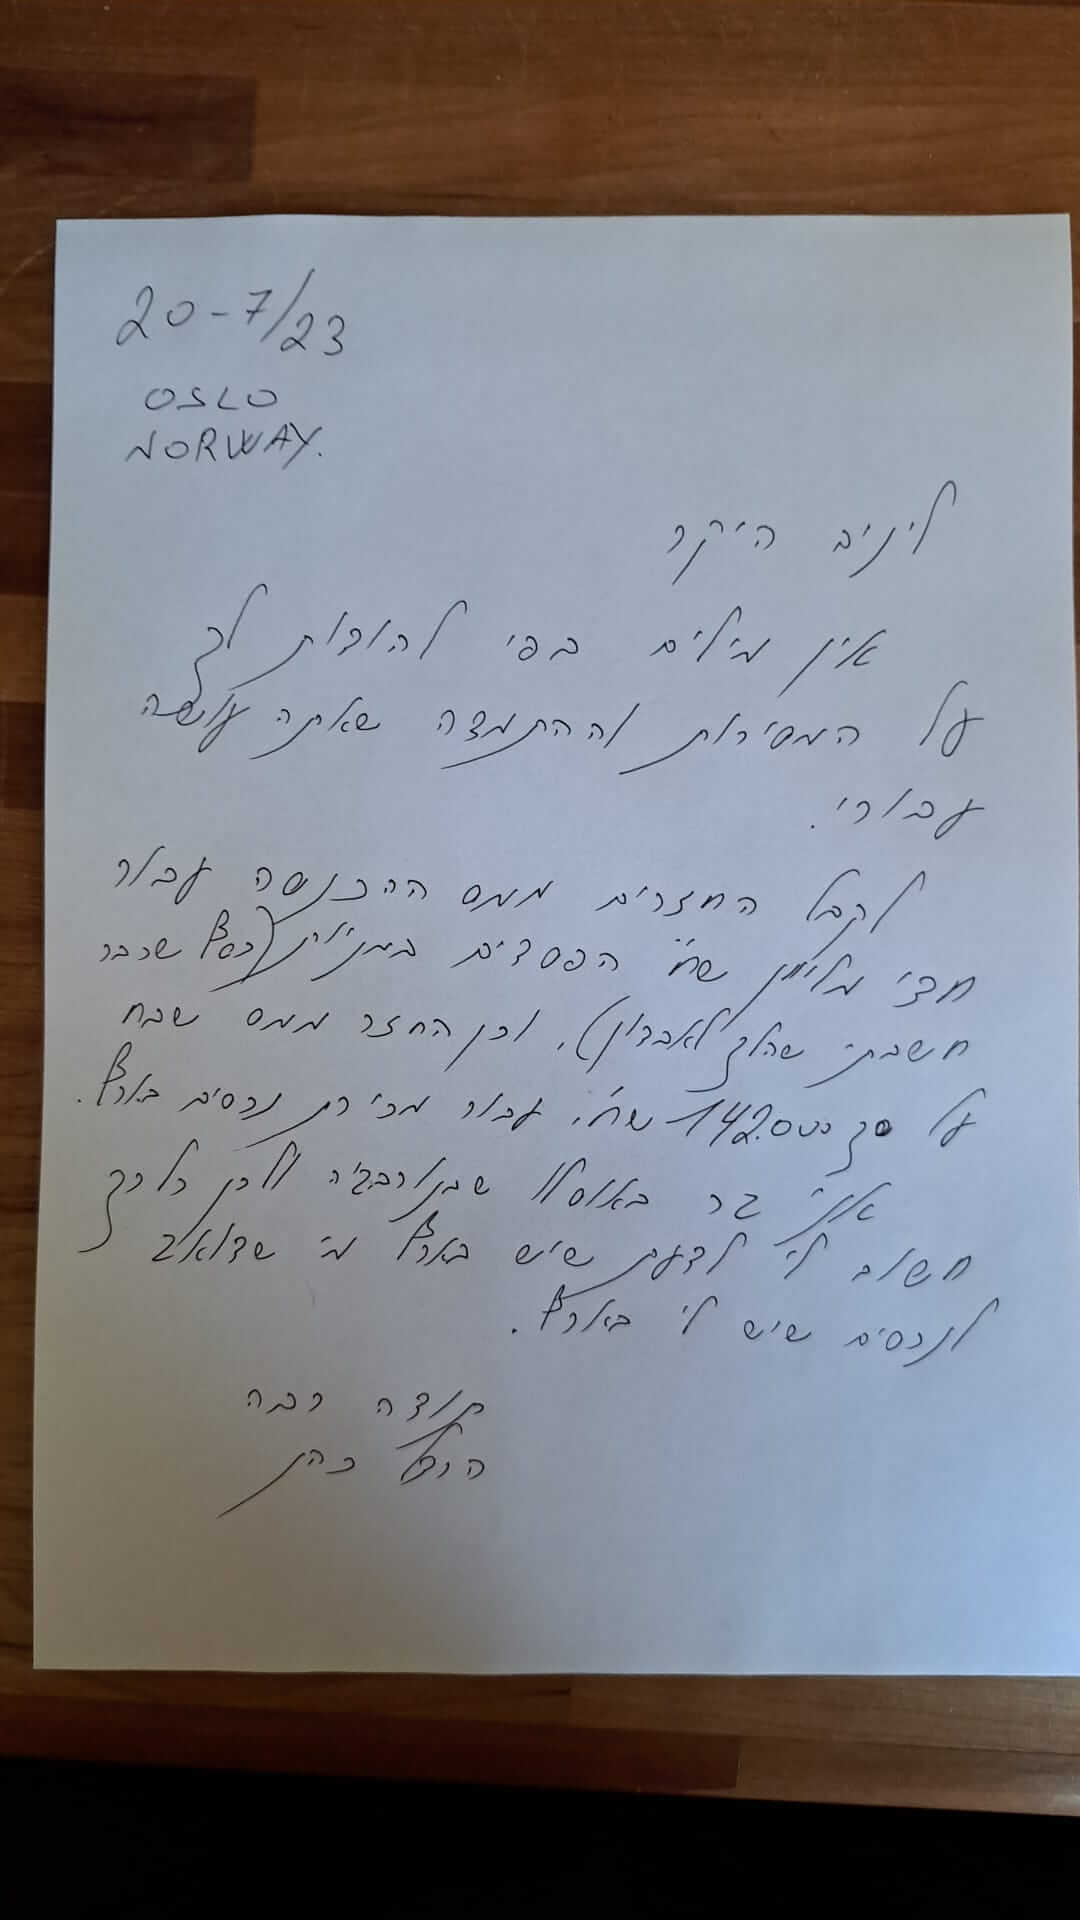 20-7/23
OSLO
NORWAY.
ליניב היקר
אין מילים בפי להודות לך
על המסירות וההתמדה שאתה עושה
עבורי.
לקבל החזרים ממס ההכנסה עבור
חצי מליון ש״ח הפסדים במניות (כסף שכבר
חשבתי שהלך לאבדון), וכן החזר ממס שבח
על סך 142.000 ש״ח, עבור מכירת נכסים בארץ.
אני גר באוסלו שבנורבגיה ולכן כל כך
חשוב לי לדעת שיש בארץ מי שדואג
לנכסים שיש לי בארץ.
תודה רבה
כהן